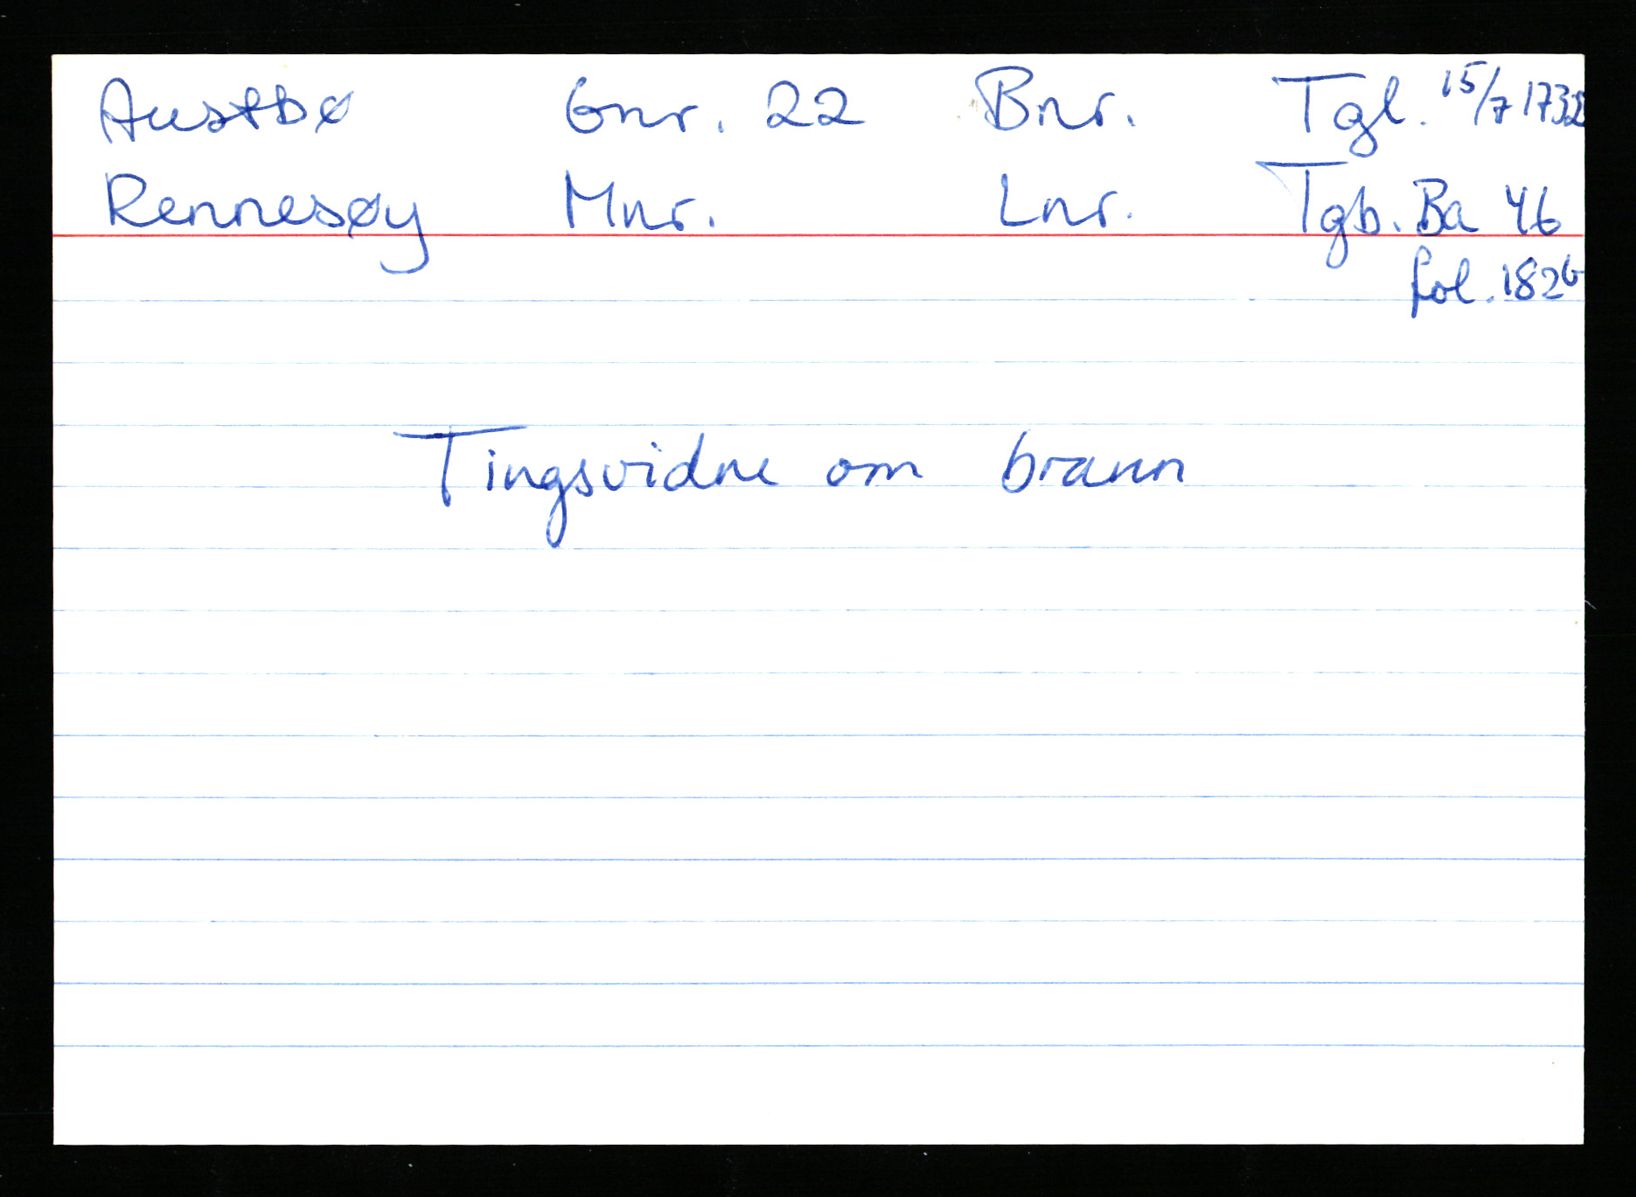 Austbø Gnr. 22 Bnr. Tgl. 15/7 1732
Rennesøy Mnr. Lnr. Tgb. Ba 46
fol. 182b
Tingsvidne om brann